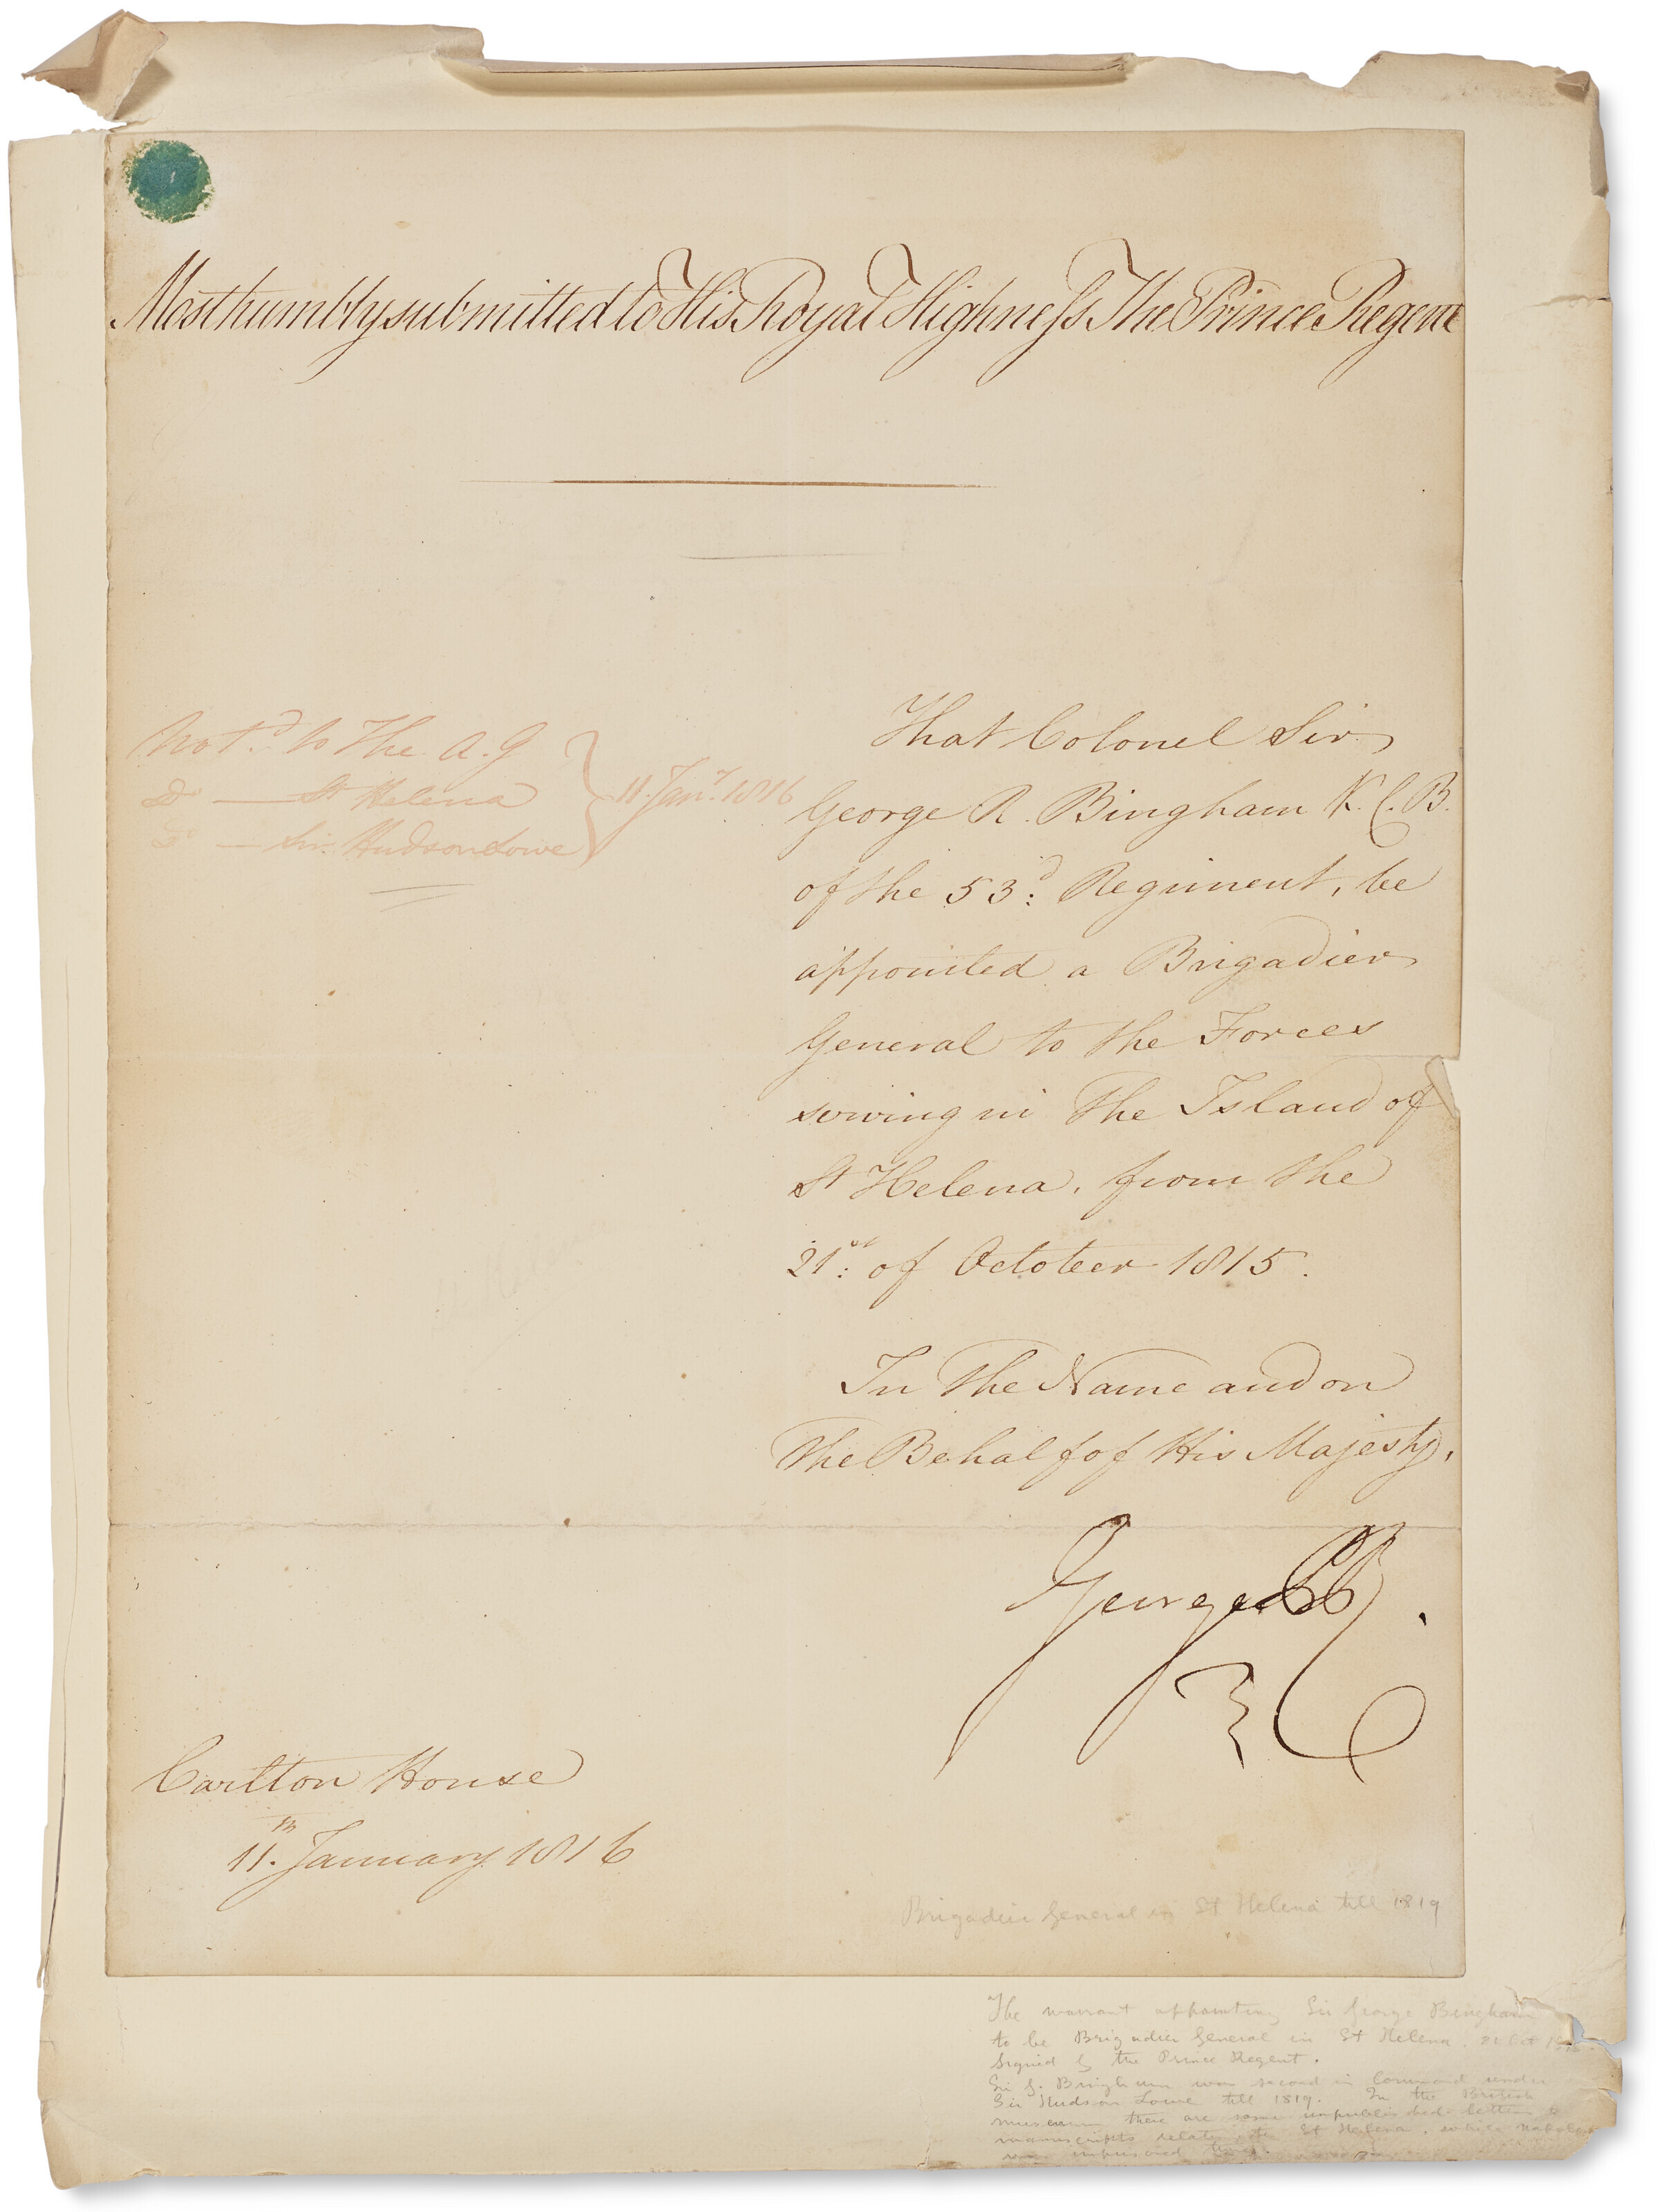 Most humbly submitted to His Royal Highness The Prince Regent
Not.d to The A.G
Do — St Helena
Do — Sir Hudson Lowe
11. Jany. 1816
That Colonel Sir
George R. Bingham K.C.B.
of the 53d: Regiment, be
appointed a Brigadier
General to the Forces
serving in The Island of
St Helena, from the
21st: of October 1815.
In The Name and on
The Behalf of His Majesty,
George P R
Carlton House
11.th January 1816
Brigadier General in St Helena till 1819
The warrant appointing Sir George Bingham
to be Brigadier General in St Helena. 21 Oct
Signed by the Prince Regent.
Sir G. Bingham was second in command under
Sir Hudson Lowe till 1819. In the British
museum there are some unpublished letters &
manuscripts relating to St Helena, while
was imprisoned there.